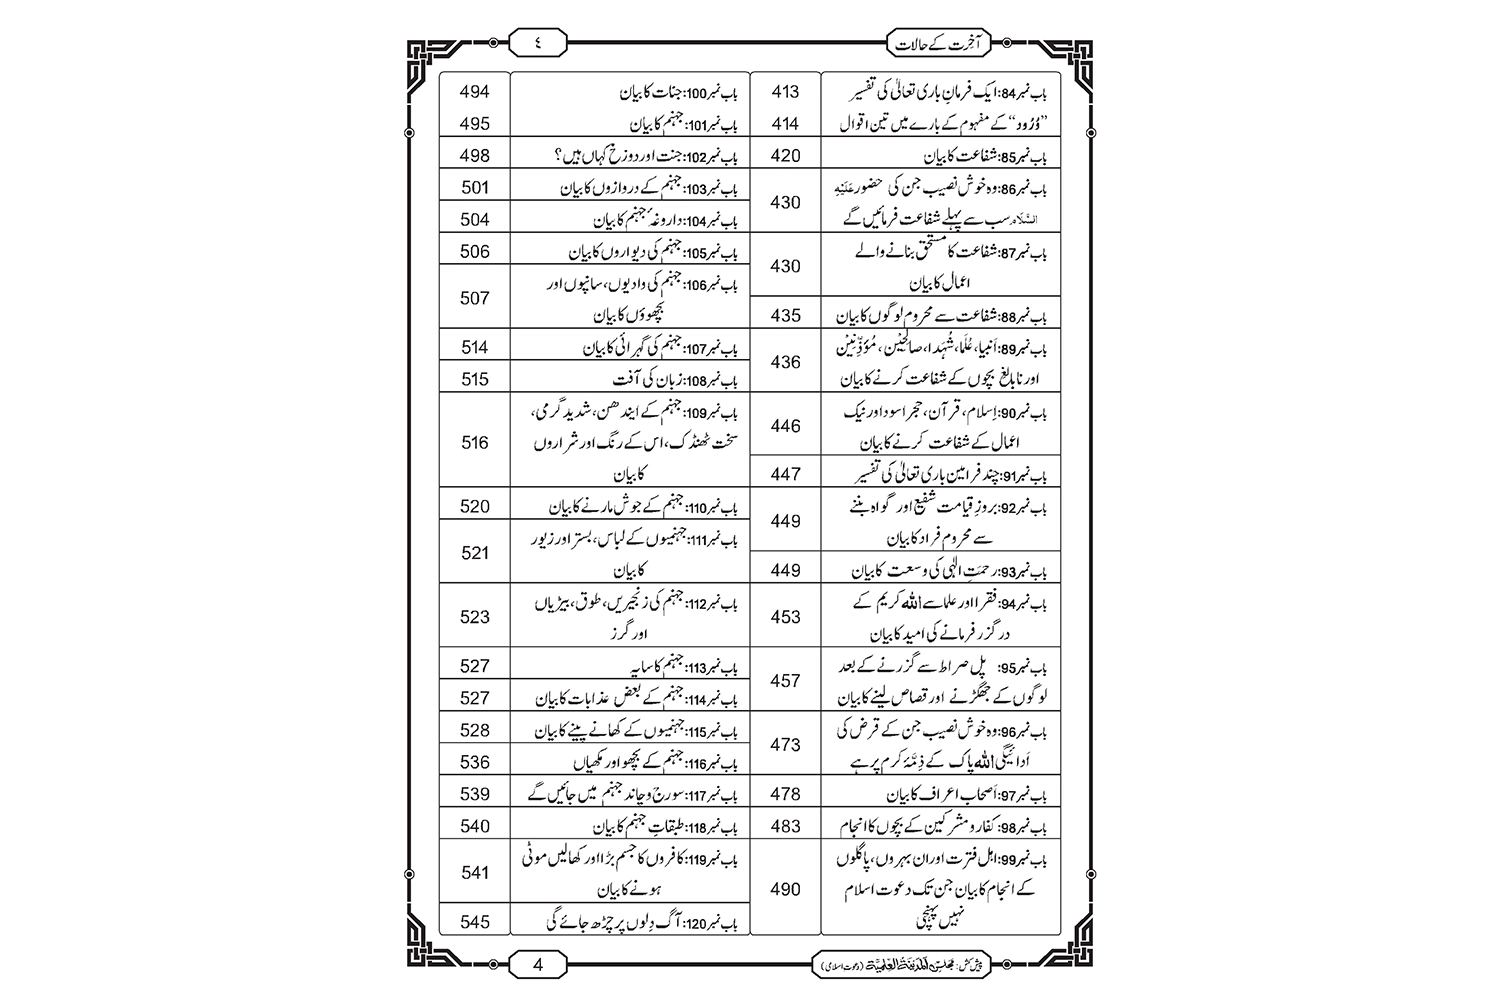 آخرت کے حالات
٤
باب نمبر84: ایک فرمانِ باری تعالیٰ کی تفسیر 413
”وُرُود“ کے مفہوم کے بارے میں تین اقوال 414
باب نمبر85: شفاعت کا بیان 420
باب نمبر86: وہ خوش نصیب جن کی حضور عَلَیْہِ
السَّلَام سب سے پہلے شفاعت فرمائیں گے 430
باب نمبر87: شفاعت کا مستحق بنانے والے
اعمال کا بیان 430
باب نمبر88: شفاعت سے محروم لوگوں کا بیان 435
باب نمبر89: اَنبیا، عُلَما، شُہَدا، صالحین، مُؤذِّنِیْن
اور نابالغ بچوں کے شفاعت کرنے کا بیان 436
باب نمبر90: اِسلام، قرآن، حجر اسود اور نیک
اعمال کے شفاعت کرنے کا بیان 446
باب نمبر91: چند فرامین باری تعالیٰ کی تفسیر 447
باب نمبر92: بروزِ قیامت شفیع اور گواہ بننے
سے محروم افراد کا بیان 449
باب نمبر93: رحمَتِ الٰہی کی وسعت کا بیان 449
باب نمبر94: فقرا اور علما سے اللہ کریم کے
درگزر فرمانے کی امید کا بیان 453
باب نمبر95: پل صراط سے گزرنے کے بعد
لوگوں کے جھگڑنے اور قصاص لینے کا بیان 457
باب نمبر96: وہ خوش نصیب جن کے قرض کی
اَدائیگی اللہ پاک کے ذِمَّۂ کرم پر ہے 473
باب نمبر97: اَصحابِ اعراف کا بیان 478
باب نمبر98: کفار و مشرکین کے بچوں کا انجام 483
باب نمبر99: اہل فترت اور ان بہروں، پاگلوں
کے انجام کا بیان جن تک دعوت اسلام
نہیں پہنچی 490
باب نمبر100: جنات کا بیان 494
باب نمبر101: جہنم کا بیان 495
باب نمبر102: جنت اور دوزخ کہاں ہیں؟ 498
باب نمبر103: جہنم کے دروازوں کا بیان 501
باب نمبر104: داروغۂ جہنم کا بیان 504
باب نمبر105: جہنم کی دیواروں کا بیان 506
باب نمبر106: جہنم کی وادیوں، سانپوں اور
بچھوؤں کا بیان 507
باب نمبر107: جہنم کی گہرائی کا بیان 514
باب نمبر108: زبان کی آفت 515
باب نمبر109: جہنم کے ایندھن، شدید گرمی،
سخت ٹھنڈک، اس کے رنگ اور شراروں
کا بیان 516
باب نمبر110: جہنم کے جوش مارنے کا بیان 520
باب نمبر111: جہنمیوں کے لباس، بستر اور زیور
کا بیان 521
باب نمبر112: جہنم کی زنجیریں، طوق، بیڑیاں
اور گرز 523
باب نمبر113: جہنم کا سایہ 527
باب نمبر114: جہنم کے بعض عذابات کا بیان 527
باب نمبر115: جہنمیوں کے کھانے پینے کا بیان 528
باب نمبر116: جہنم کے بچھو اور مکھیاں 536
باب نمبر117: سورج و چاند جہنم میں جائیں گے 539
باب نمبر118: طبقاتِ جہنم کا بیان 540
باب نمبر119: کافروں کا جسم بڑا اور کھالیں موٹی
ہونے کا بیان 541
باب نمبر120: آگ دِلوں پر چڑھ جائے گی 545
پیش کش: مجلس المدینۃ العلمیۃ (دعوت اسلامی)
4